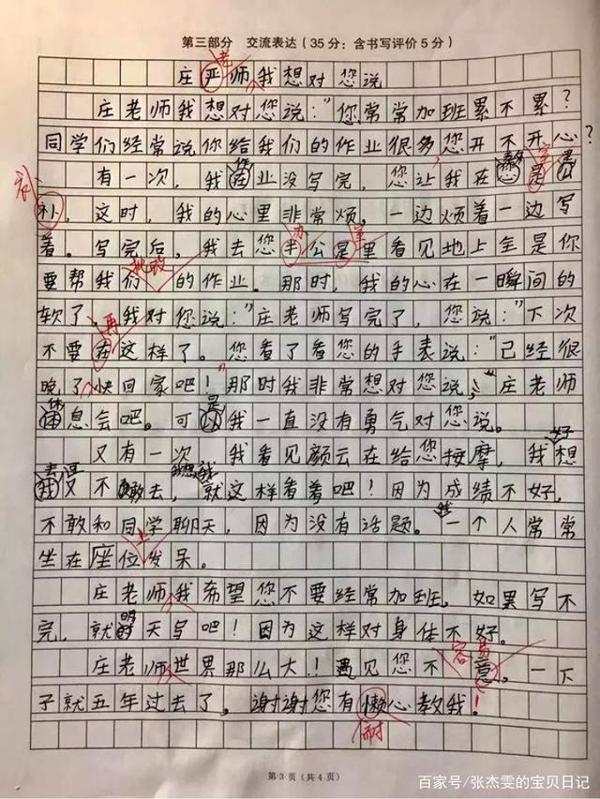 第三部分 交流表达(35分:含书写评价5分)
老
庄严师我想对您说
庄老师我想对您说:“你常常加班累不累?
同学们经常说你给我们的作业很多,您开不开心?
作 教 室
有一次,我业没写完,您让我在
补
补,这时,我的心里非常烦。一边烦着一边写
办 室
着。写完后,我去您半公是里看见地上全是你
批改
要帮我们的作业。那时,我的心在一瞬间的
再
软了,我对您说:“庄老师写完了,您说:“下次
不要在这样了。您看了看您的手表说:“己经很
晚了快回家吧!那时我非常想对您说,庄老师
休 是
息会吧。可我一直没有勇气对您说。
又有一次 我看见颜云在给您按摩,我好想
去又不敢去,就这样看着吧!因为成绩不好,
我
不敢和同学聊天,因为没有话题。一个人常常
上
坐在座位发呆。
庄老师我希望您不要经常加班。如果写不
完,就明天写吧!因为这样对身住不好。
容易
庄老师世界那么大!遇见您不意。一下
子就五年过去了。谢谢您有懒心教我!
耐
第3页(共4页)
百家号/张杰雯的宝贝日记